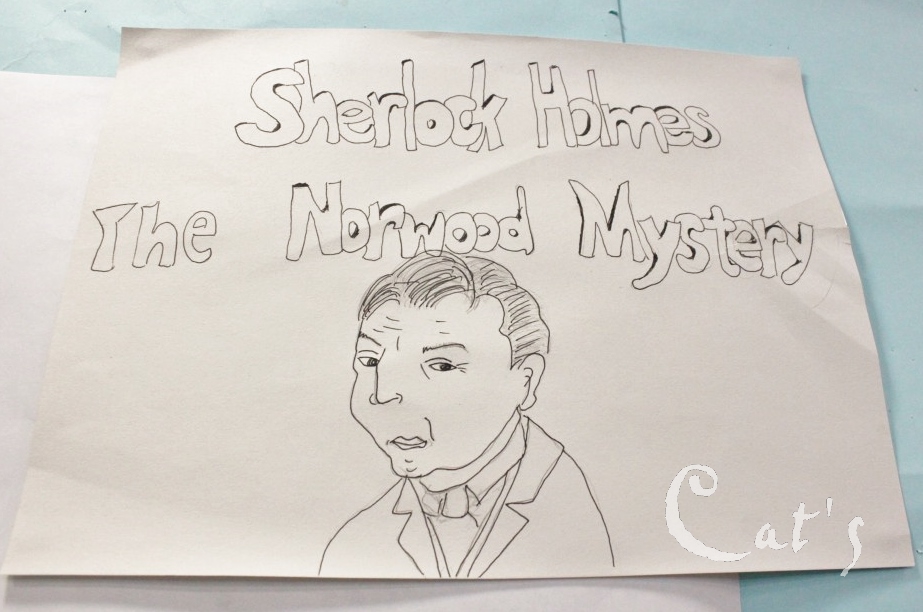 Sherlock Holmes
The Norwood Mystery
Cat's